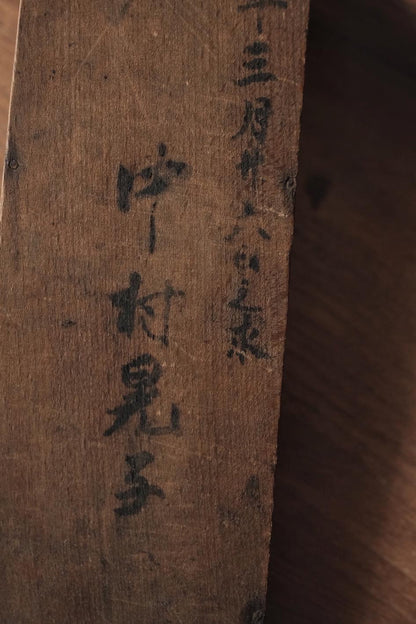 年三月廿六日之求
中村晃子